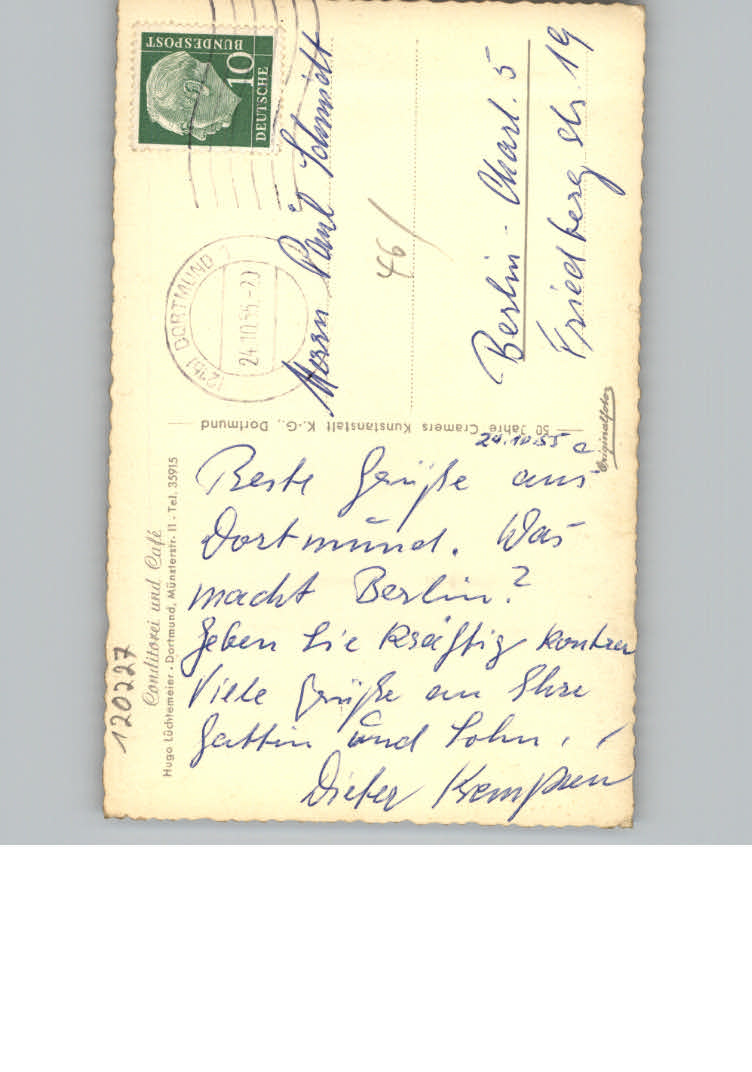 Conditorei und Café
Hugo Lüchtemeier · Dortmund, Münsterstr. 11 · Tel. 35915
120227
24.10.55
Beste Grüße aus
Dortmund. Was
macht Berlin?
Geben Sie kräftig kontra
Viele Grüße an Ihre
Gattin und Sohn.
Dieter
50 Jahre Cramers Kunstanstalt K.-G., Dortmund
Originalfoto
DEUTSCHE
BUNDESPOST
10
DORTMUND
24.10.55-20
Herrn Paul Schmidt
46/
Berlin - Charl. 5
Friedbergstr. 19